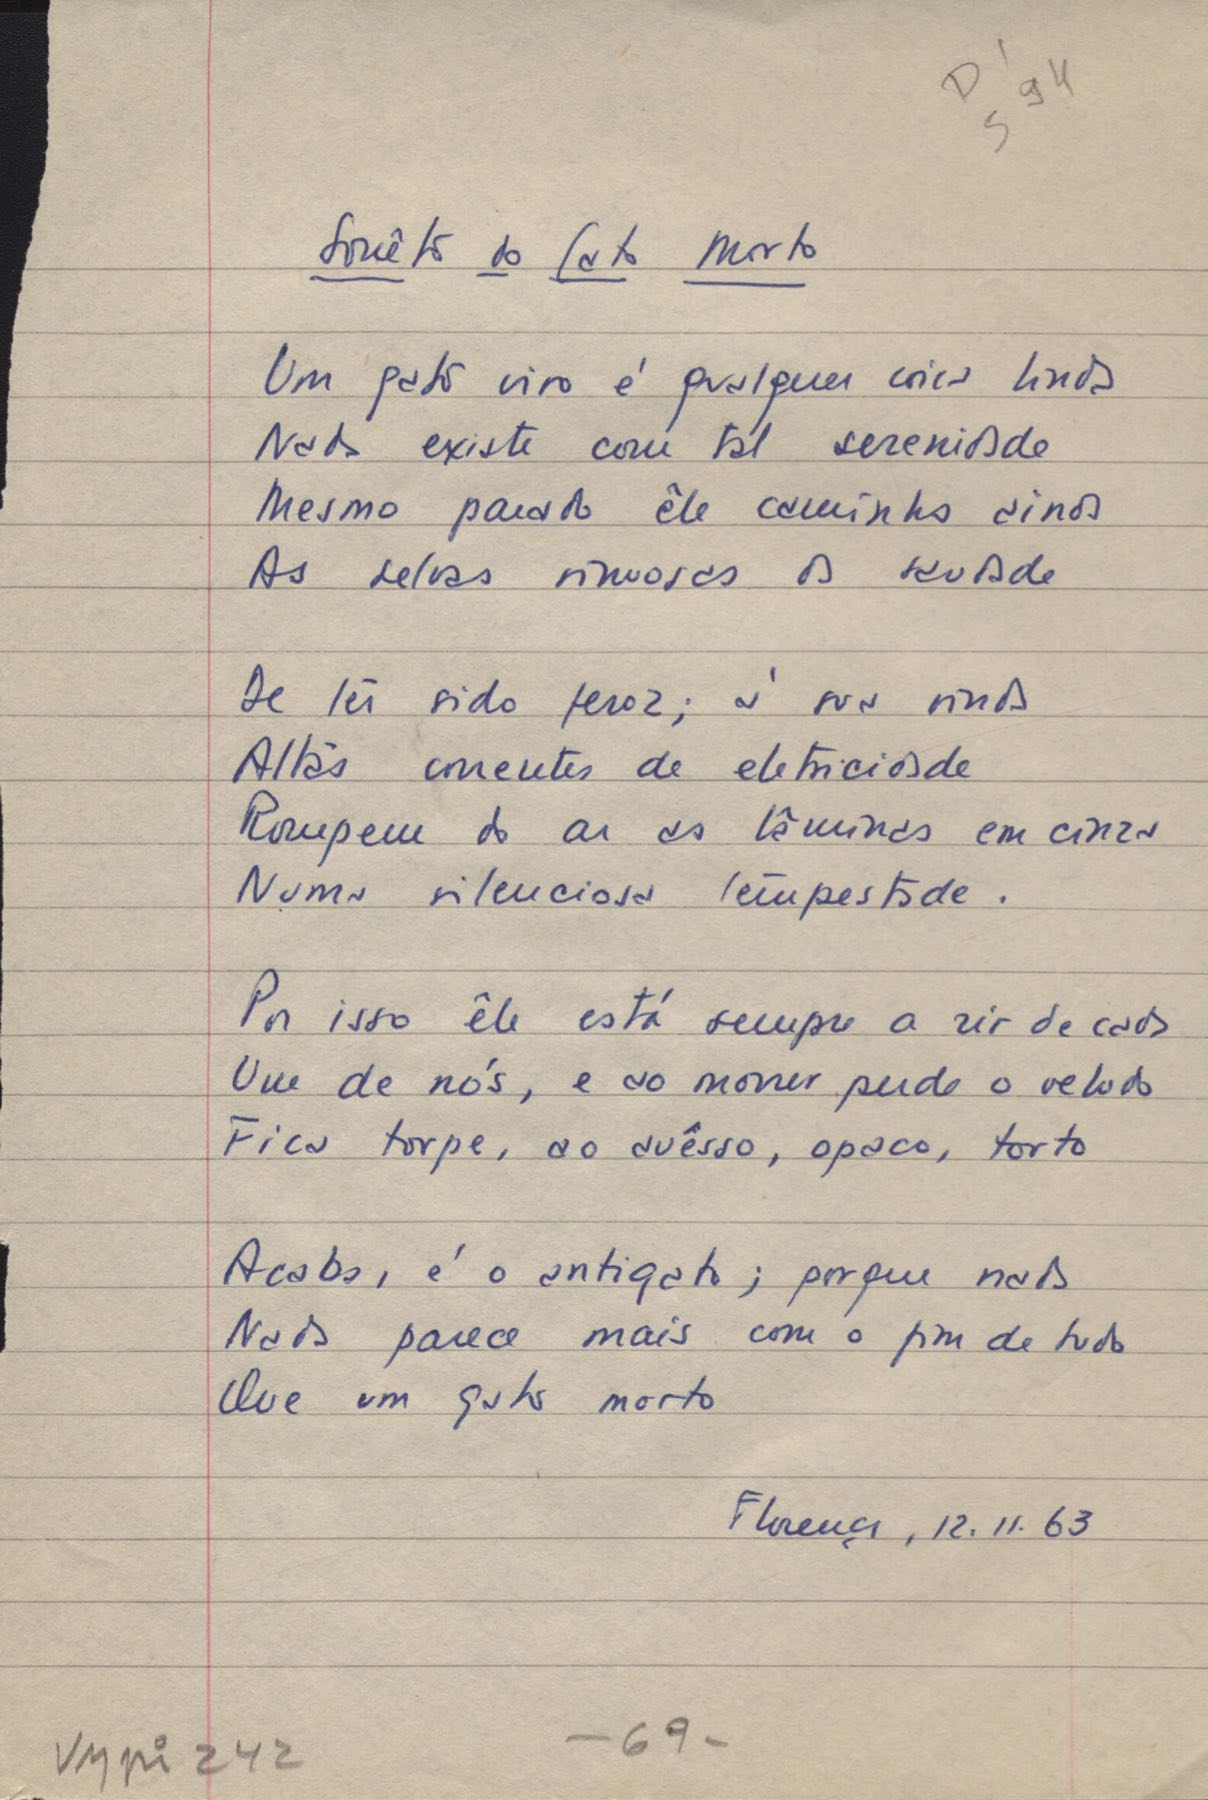 D' 94
S
Sonêto do Gato Morto
Um gato vivo é qualquer coisa linda
Nada existe com tal serenidade
Mesmo parado êle caminha ainda
As selvas sinuosas da saudade
De ter sido feroz; à sua vinda
Altas correntes de eletricidade
Rompem do ar as lâminas em cinza
Numa silenciosa tempestade.
Por isso êle está sempre a rir de cada
Um de nós, e ao morrer perde o veludo
Fica torpe, ao avêsso, opaco, torto
Acaba, é o antigato; porque nada
Nada parece mais com o fim de tudo
Que um gato morto
Florença, 12.11.63
-69-
VMpi 242